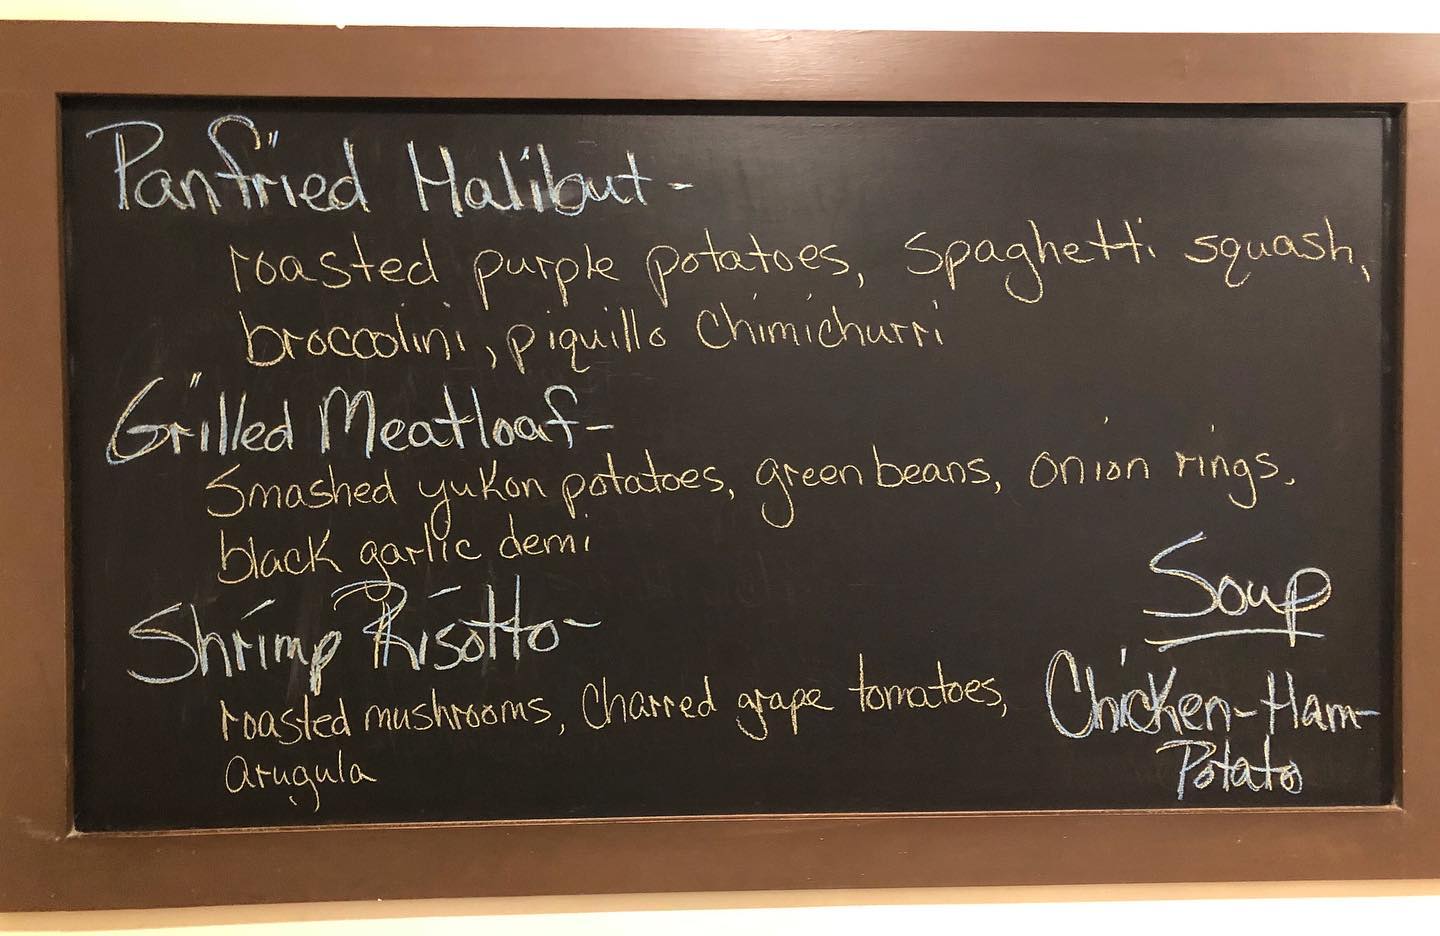 Panfried Halibut-
roasted purple potatoes, Spaghetti squash,
broccolini, piquillo Chimichurri
Grilled Meatloaf-
Smashed yukon potatoes, green beans, onion rings,
black garlic demi
Shrimp Risotto-
roasted mushrooms, Charred grape tomatoes,
Arugula
Soup
Chicken-Ham-
Potato